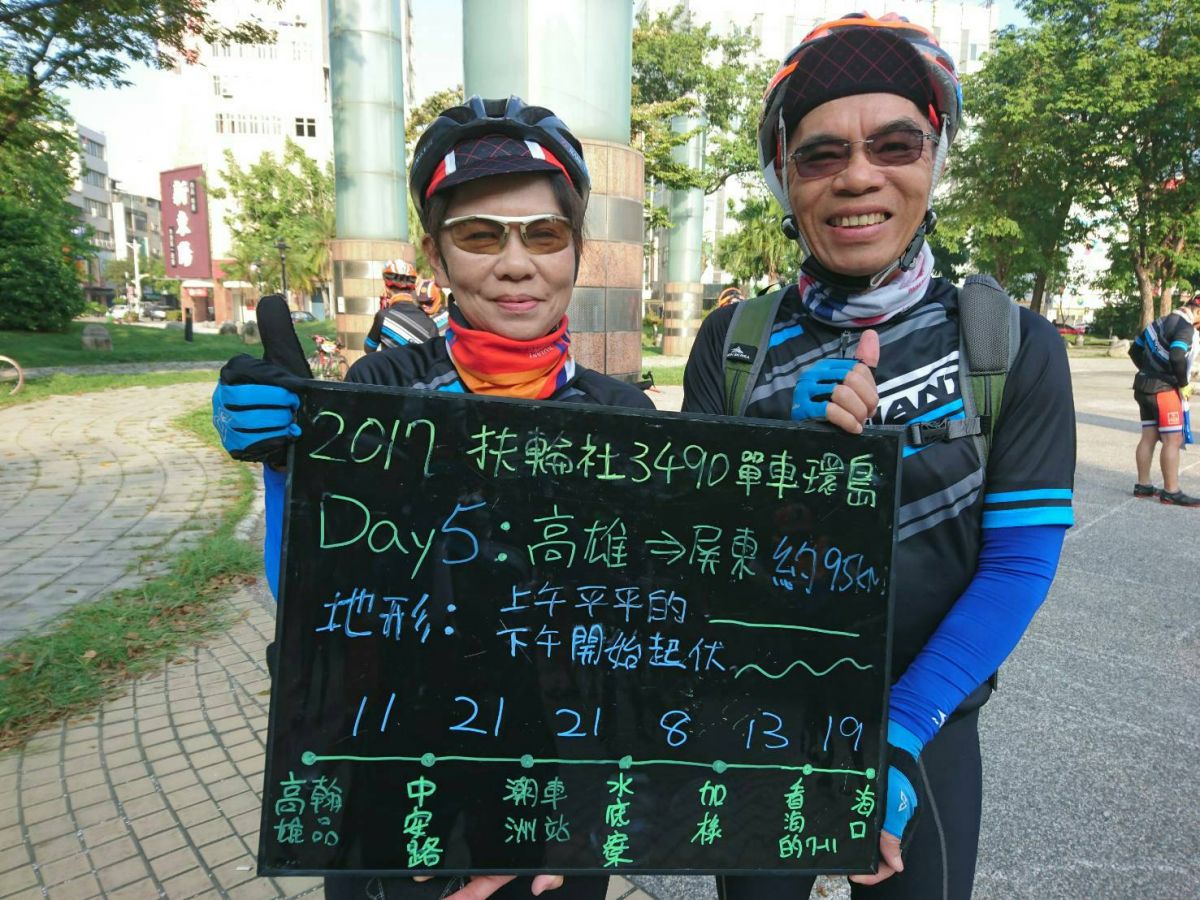 新東陽
2017 扶輪社3490單車環島
Day5：高雄⇒屏東 約95km
地形： 上午平平的
下午開始起伏
11 21 21 8 13 19
高雄翰品
中安路
潮洲車站
水底寮
加祿
香海的7-11
海口
IANT